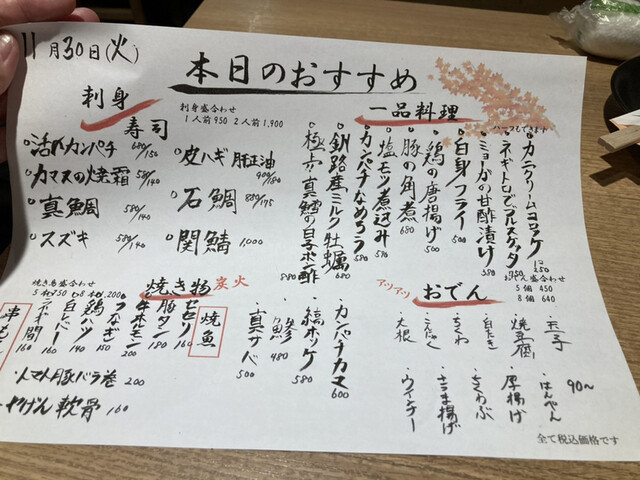 11月30日(火)
本日のおすすめ
刺身
寿司
刺身盛合わせ
1人前950 2人前1,900
活〆カンパチ 680/150
カマスの焼霜 580/140
真鯛 580/140
スズキ 580/140
皮ハギ肝醤油 900/180
石鯛 880/175
関鯖 1000
一品料理
ハーフもできます
カニクリームコロッケ 1コ250
ネギトロとブルスケッタ
ミョーガの甘酢漬け 580
白身フライ 500
鶏の唐揚げ 500
豚の角煮 680
塩モツ煮込み 570
カンパチなめろう 580
釧路産ミルク牡蠣 680
極上真鱈の白子ポン酢 580
焼き物 炭火
焼き鳥盛合わせ
5本750 8本1,200
セセリ 160
豚タン 180
牛ホルモン 200
つなぎ 140
鶏ハツ 150
白レバー 160
串もの
トマト豚バラ巻 200
やげん軟骨 160
焼魚
カンパチカマ 600
縞ホッケ 580
鯵 480
真サバ 500
アツアツ おでん
おでん盛合わせ
5個 450
8個 640
90~
玉子
焼豆腐
白たき
ちくわ
こんにゃく
大根
はんぺん
厚揚げ
ちくわぶ
さつま揚げ
ウインナー
全て税込価格です